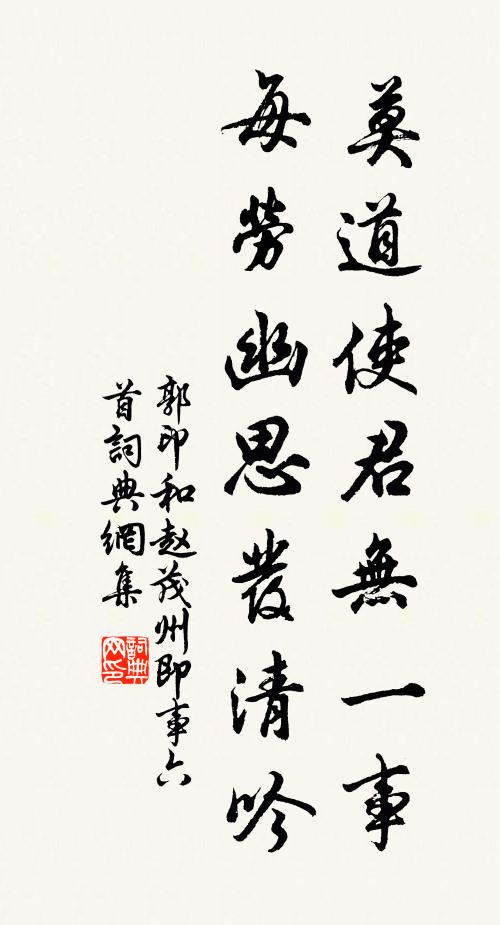 莫道使君無一事
每勞幽思發清吟
郭印和赵茂州即事六
首詞典網集
詞典网印